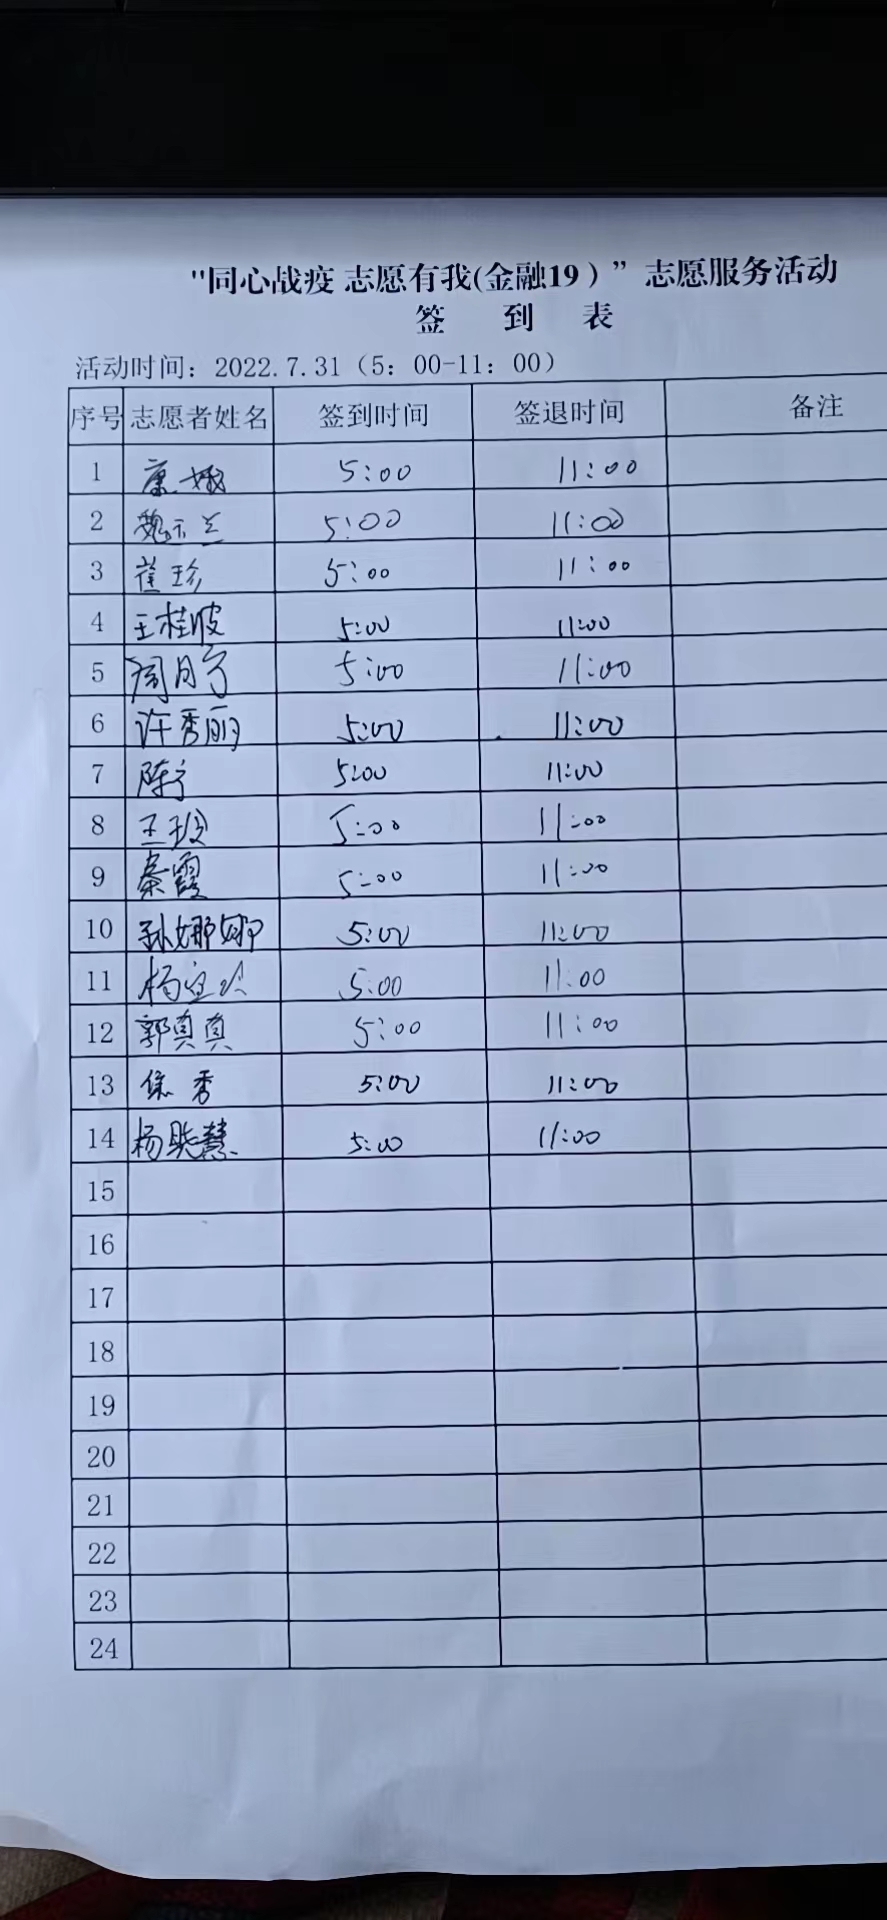 "同心战疫 志愿有我(金融19）” 志愿服务活动
签 到 表
活动时间：2022.7.31（5：00-11：00）
序号 志愿者姓名 签到时间 签退时间 备注
1 康娥 5:00 11:00
2 魏 兰 5:00 11:00
3 崔珍 5:00 11:00
4 王桂波 5:00 11:00
5 周月 5:00 11:00
6 许秀丽 5:00 11:00
7 陈 5:00 11:00
8 王 5:00 11:00
9 秦霞 5:00 11:00
10 孙娜娜 5:00 11:00
11 杨 5:00 11:00
12 郭真真 5:00 11:00
13 焦秀 5:00 11:00
14 杨 慧 5:00 11:00
15
16
17
18
19
20
21
22
23
24